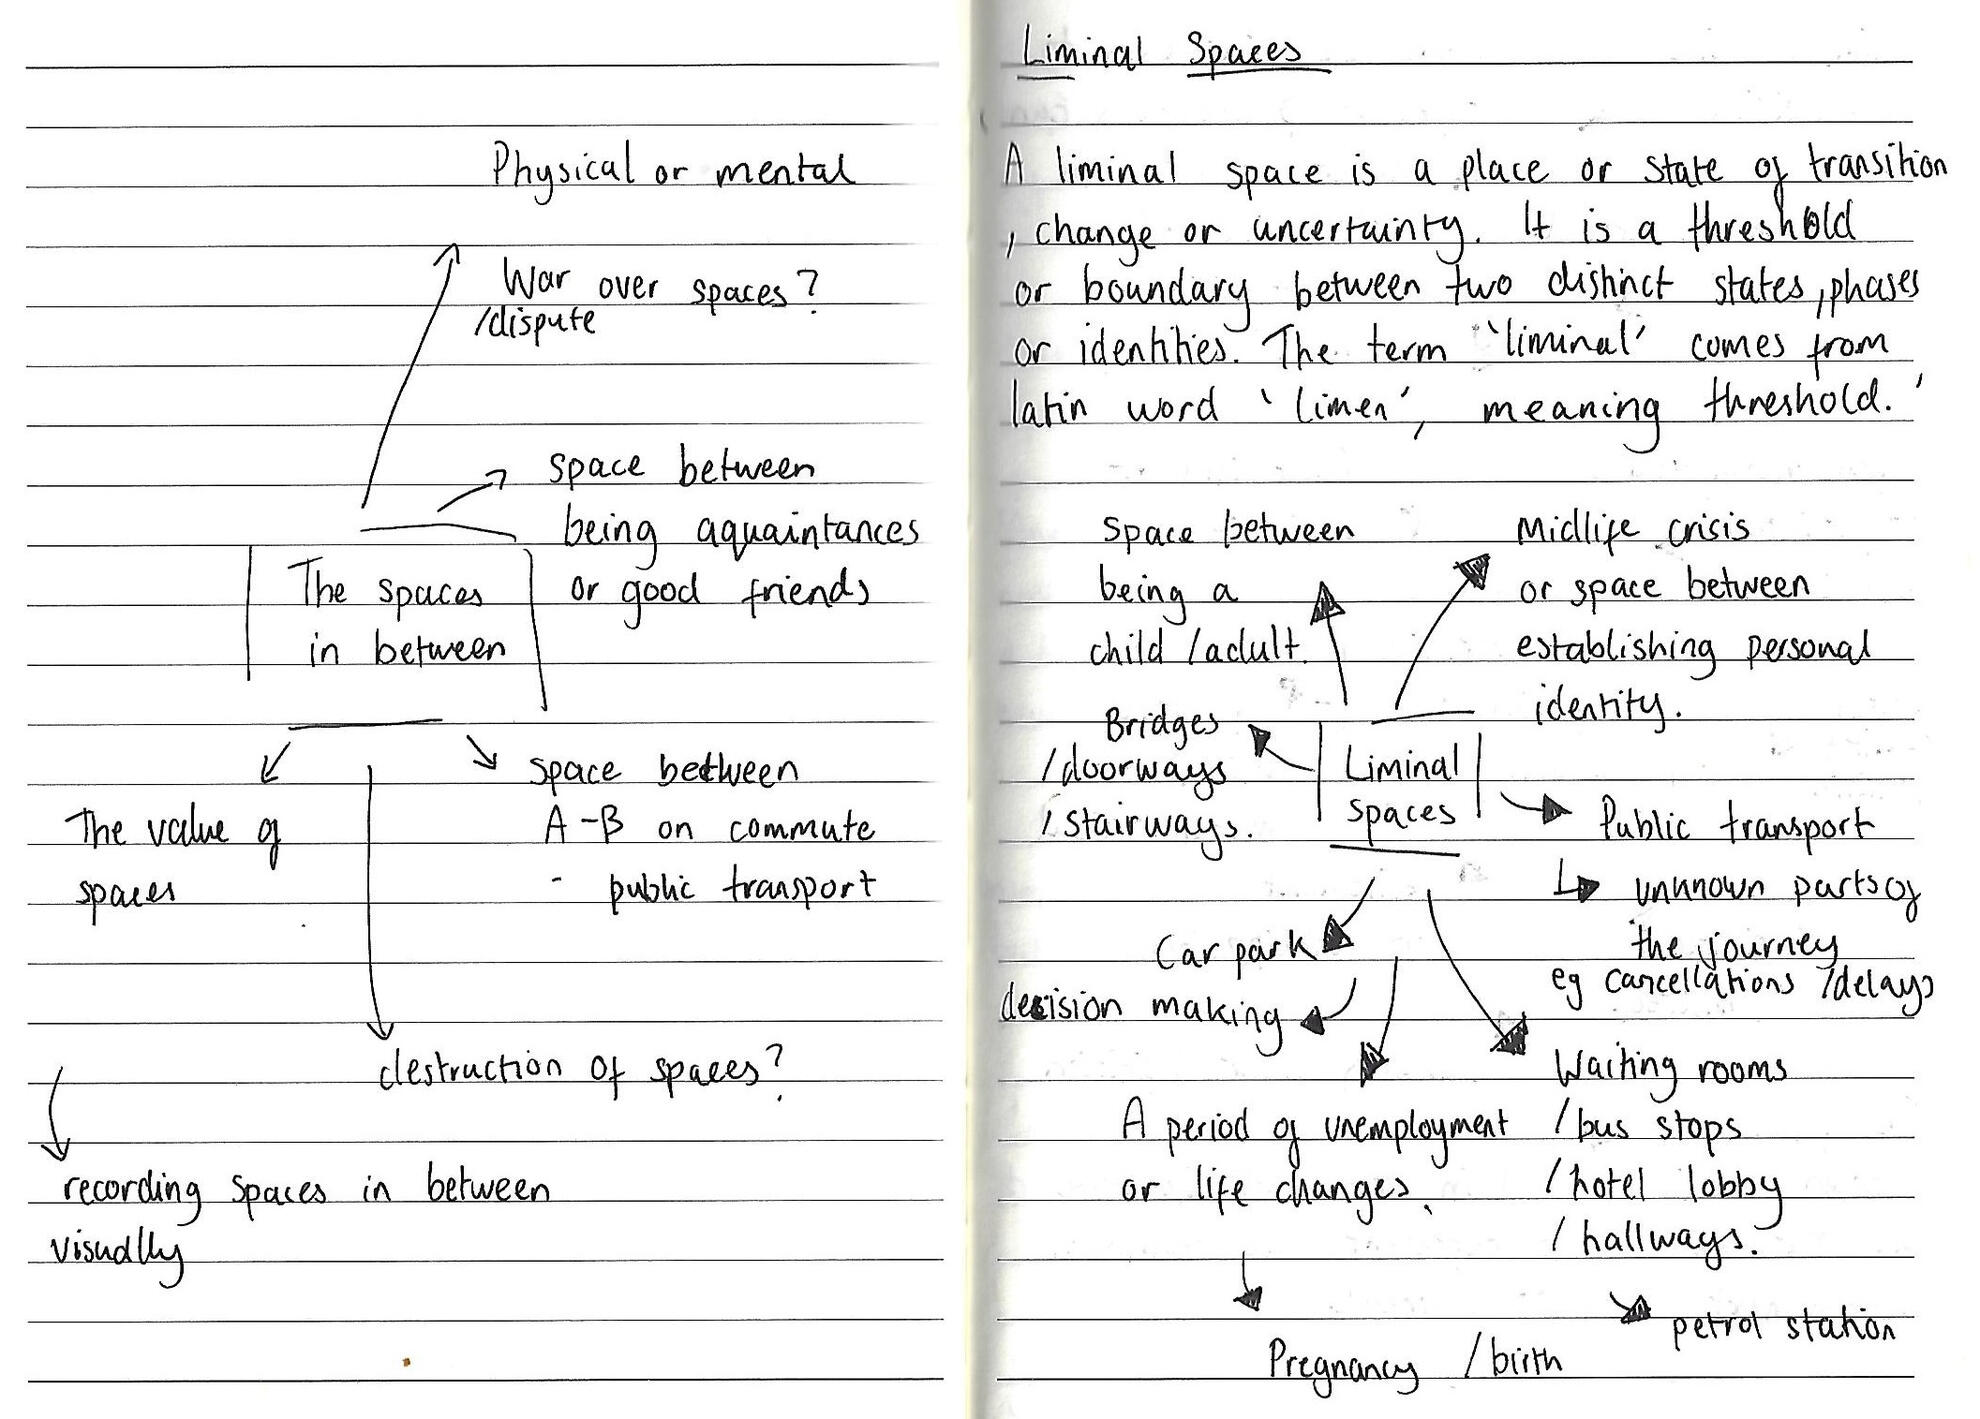 Physical or mental
War over spaces?
/dispute
space between
being aquaintances
or good friends
The spaces
in between
space between
A-B on commute
- public transport
The value of
spaces
destruction of spaces?
recording spaces in between
visually
Liminal Spaces
A liminal space is a place or state of transition
, change or uncertainty. It is a threshold
or boundary between two distinct states, phases
or identities. The term 'liminal' comes from
latin word 'limen', meaning threshold.'
Space between
being a
child /adult.
Midlife crisis
or space between
establishing personal
identity.
Bridges
/doorways
/stairways.
Liminal
spaces
Public transport
unknown parts of
the journey
eg cancellations /delays
Car park
decision making
A period of unemployment
or life changes.
Waiting rooms
/bus stops
/hotel lobby
/hallways.
petrol station
Pregnancy /birth